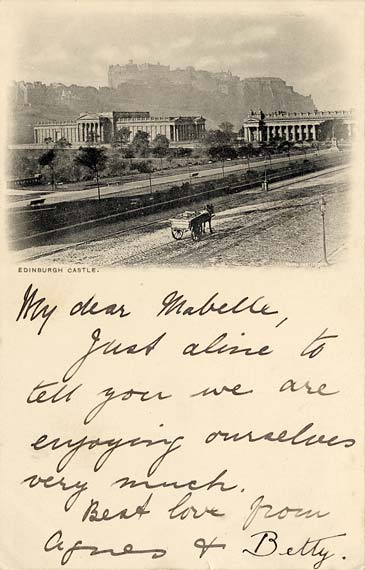 EDINBURGH CASTLE.
My dear Mabelle,
Just aline to
tell you we are
enjoying ourselves
very much.
Best love from
Agnes & Betty.